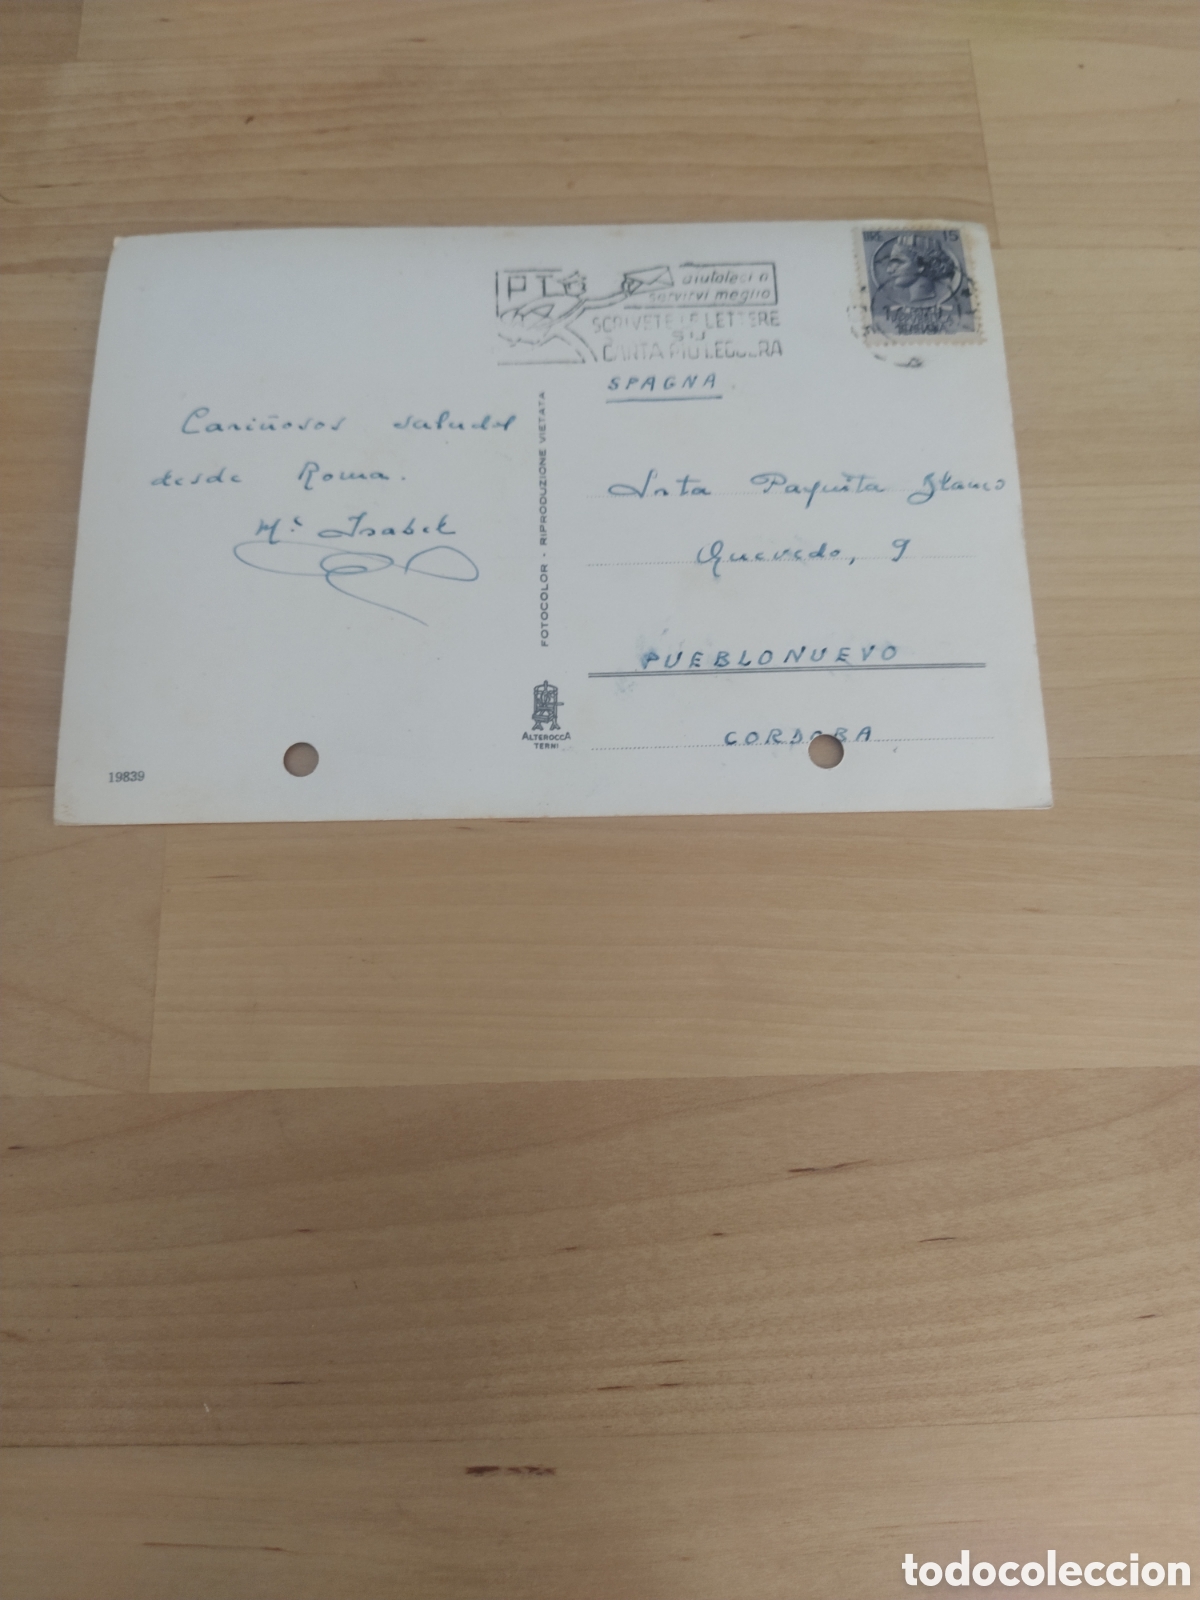 LIRE 15
PT
aiutateci a
servirvi meglio
SCRIVETE LE LETTERE
SU
CARTA PIÙ LEGGERA
SPAGNA
Cariñosos saludos
desde Roma.
Mª Isabel
Srta Paquita
Quevedo, 9
PUEBLONUEVO
CORDOBA
FOTOCOLOR - RIPRODUZIONE VIETATA
ALTEROCCA
TERNI
19839
todocoleccion